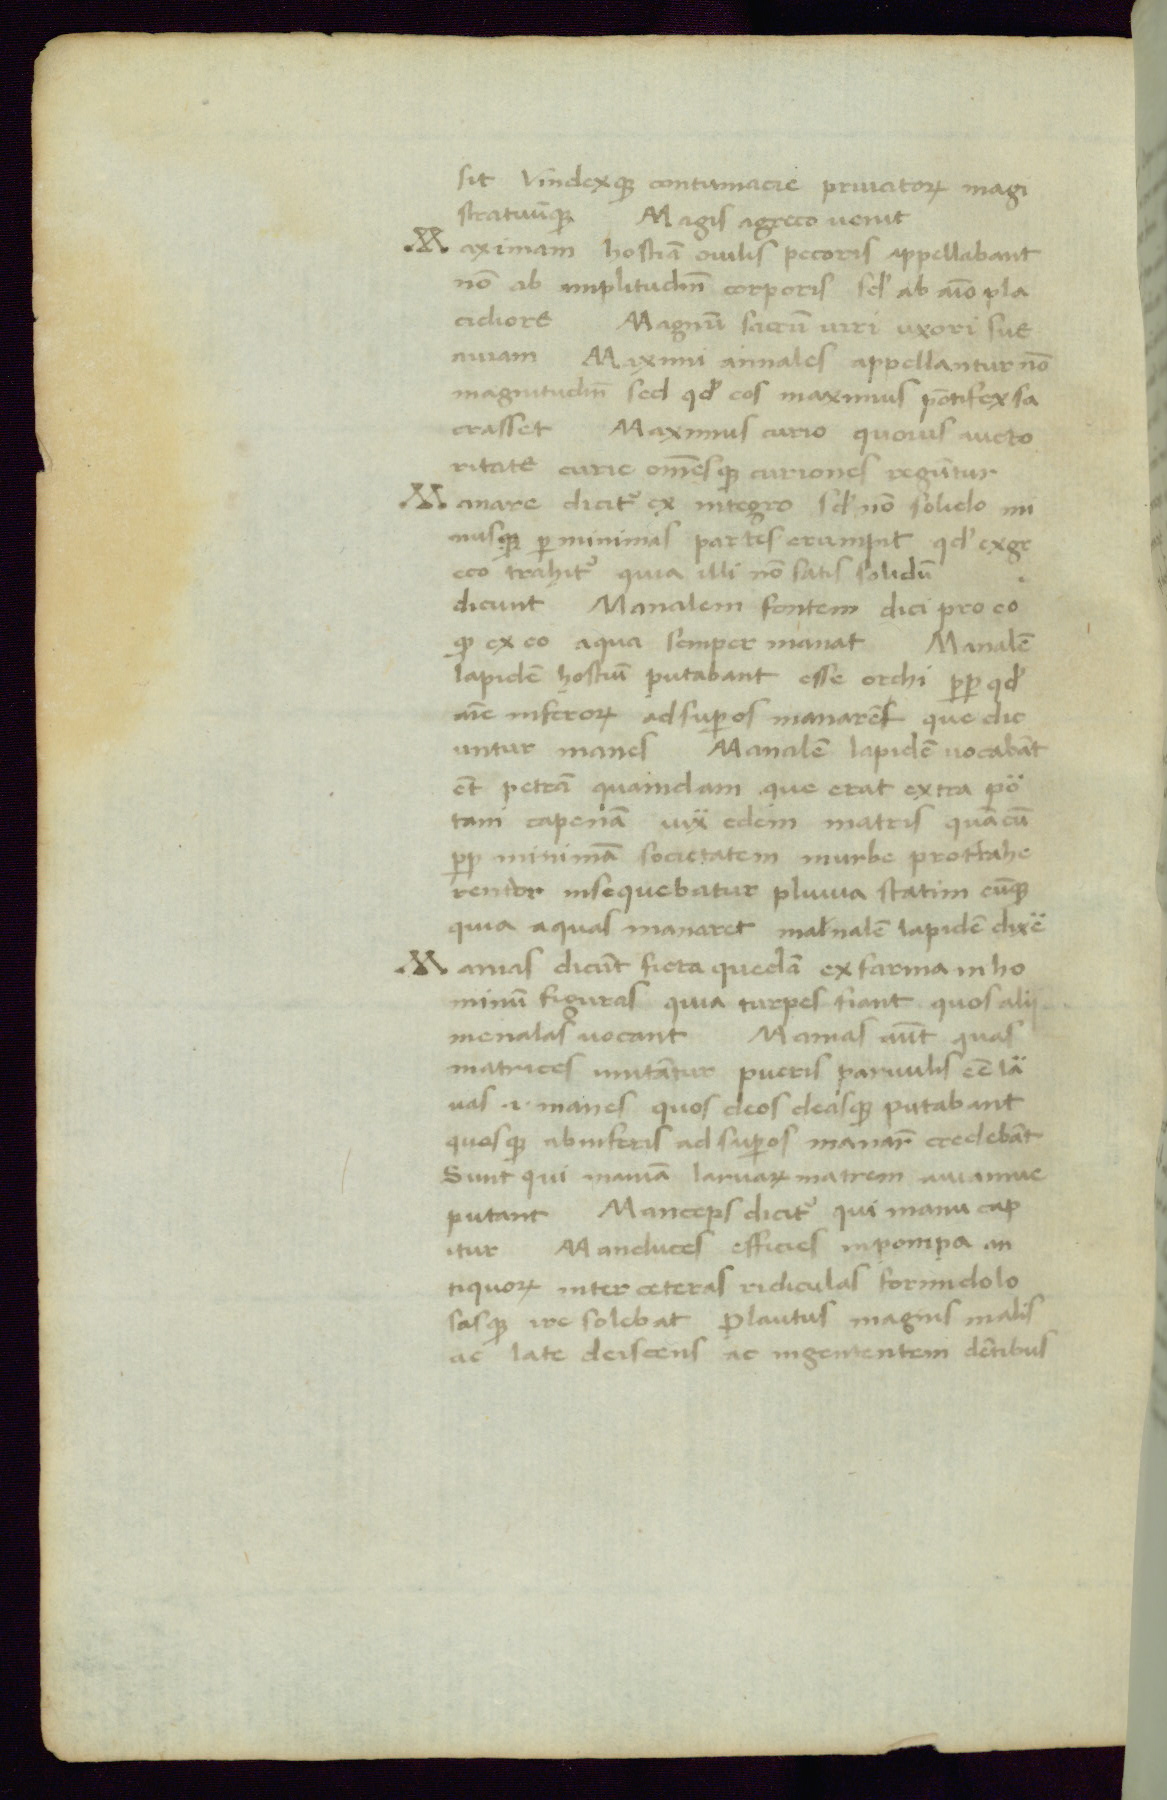 sit Vindexqꝫ contumacie priuatoꝝ magi
stratuūqꝫ Magis agreco uenit
Maximam hostiā ouilis pecoris appellabant
nō ab mplitudinē corporis sꝫ ab aīo pla
cidiore Magnū sacrū uiri uxori sue
auiam Maximi annales appellantur nō
magnitudinē sed qđ eos maximus pōtifex sa
crasset Maximus curio quoius aucto
ritate curie omēsqꝫ curiones regūtur
Manare dicitᷣ ex integro sꝫ nō solido mi
nusqꝫ ꝑ minimas partes erumpit qđ ex gr
eco trahitᷣ quia illi nō satis solidū
dicunt Manalem fontem dici pro eo
qꝫ ex eo aqua semper manat Manalē
lapidē hostiū putabant esse orchi ꝓꝑ qđ
aīe inferoꝝ ad suꝑos manarēt que dic
untur manes Manalē lapidē uocabāt
ēt petrā quamdam que erat extra por̈
tam capenā iuẍ edem matris quā cū
ꝓꝑ minimā societatem inurbe prottahe
rentor insequebatur pluuia statim eūqꝫ
quia aquas manaret malnalē lapidē dixë
Manias dicūt ficta quedā ex farina in ho
minū figuras quia turpes fiant quos alij
menalas uocant Manias aūt quas
matrices imitātur pueris paruulis eē lar̈
uas .i. manes quos deos deasqꝫ putabant
quosqꝫ ab inferis ad suꝑos manarē credebāt
Sunt qui maniā laruaꝝ matrem auiamue
putant Manceps dicitᷣ qui manu cap
itur Manduces efficies in pompa an
tiquoꝝ inter ceteras ridiculas formidolo
sasqꝫ ire solebat Plautus magnis malis
ac late deiscens ac ingententem dētibus